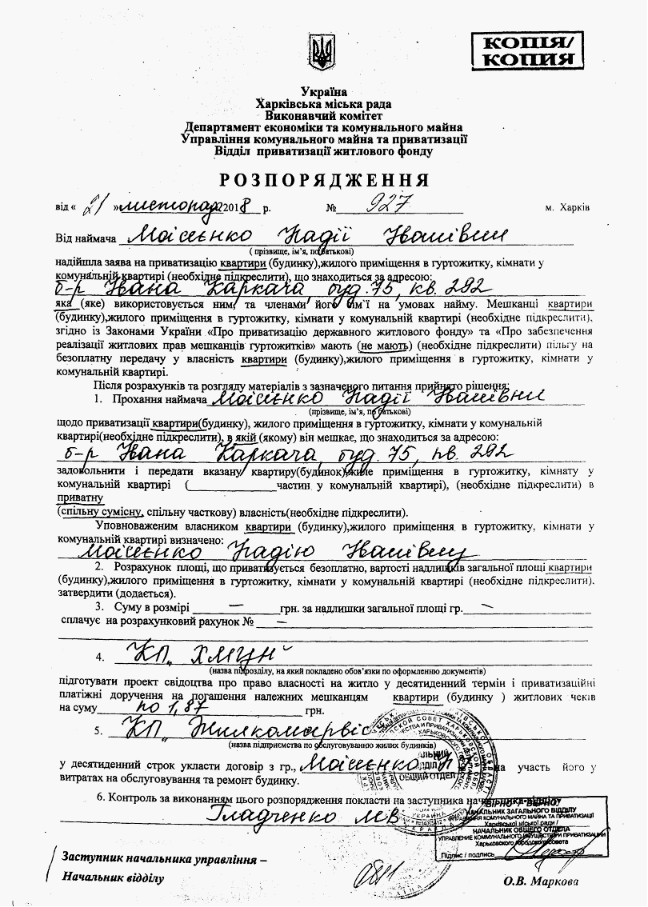 КОПІЯ/
КОПИЯ
Україна
Харківська міська рада
Виконавчий комітет
Департамент економіки та комунального майна
Управління комунального майна та приватизації
Відділ приватизації житлового фонду
РОЗПОРЯДЖЕННЯ
від « 21 » листопад 2018 р. № 927 м. Харків
Від наймача Моісеєнко Надії
( прізвище, ім’я, по батькові)
надійшла заява на приватизацію квартири (будинку),жилого приміщення в гуртожитку, кімнати у
комунальній квартирі (необхідне підкреслити), що знаходиться за адресою:
б-р Івана Каркача буд. 75, кв. 292
яка (яке) використовується ним та членами його їм’ї на умовах найму. Мешканці квартири
(будинку),жилого приміщення в гуртожитку, кімнати у комунальній квартирі (необхідне підкреслити),
згідно із Законами України «Про приватизацію державного житлового фонду» та «Про забезпечення
реалізації житлових прав мешканців гуртожитків» мають (не мають) (необхідне підкреслити) пільгу на
безоплатну передачу у власність квартири (будинку),жилого приміщення в гуртожитку, кімнати у
комунальній квартирі.
Після розрахунків та розгляду матеріалів з зазначеного питання прийнято рішення:
1. Прохання наймача Моісеєнко Надії
(прізвище, ім’я, по батькові)
щодо приватизації квартири(будинку), жилого приміщення в гуртожитку, кімнати у комунальній
квартирі(необхідне підкреслити), в якій (якому) він мешкає, що знаходиться за адресою:
б-р Івана Каркача, буд. 75, кв. 292
задовольнити і передати вказану квартиру(будинок)жиле приміщення в гуртожитку, кімнату у
комунальній квартирі (____________частин у комунальній квартирі), (необхідне підкреслити) в
приватну
(спільну сумісну, спільну часткову) власність(необхідне підкреслити).
Уповноваженим власником квартири (будинку),жилого приміщення в гуртожитку, кімнати у
комунальній квартирі визначено:
Моісеєнко Надію
2. Розрахунок площі, що приватизується безоплатно, вартості надлишків загальної площі квартири
(будинку),жилого приміщення в гуртожитку, кімнати у комунальній квартирі (необхідне підкреслити).
затвердити (додається).
3. Суму в розмірі — грн. за надлишки загальної площі гр. —
сплачує на розрахунковий рахунок № —
4. КП „ХМЦН“
(назва підрозділу, на який покладено обов’язки по оформленню документів)
підготувати проект свідоцтва про право власності на житло у десятиденний термін і приватизаційні
платіжні доручення на погашення належних мешканцям квартири (будинку ) житлових чеків
на суму по 1,87 грн.
5. КП „Жилкомсервіс
(назва підприємства по обслуговуванню жилих будинків)
у десятиденний строк укласти договір з гр., Моісеєнко на участь його у
витратах на обслуговування та ремонт будинку.
6. Контроль за виконанням цього розпорядження покласти на заступника начальника
Гладченко
НАЧАЛЬНИК ЗАГАЛЬНОГО ВІДДІЛУ
Харківської міської ради /
НАЧАЛЬНИК ОБЩЕГО ОТДЕЛА
УПРАВЛЕНИЕ КОММУНАЛЬНОГО ИМУЩЕСТВА И ПРИВАТИЗАЦИИ
Харьковского городского совета
Підпис / подпись
Заступник начальника управління –
Начальник відділу О.В. Маркова